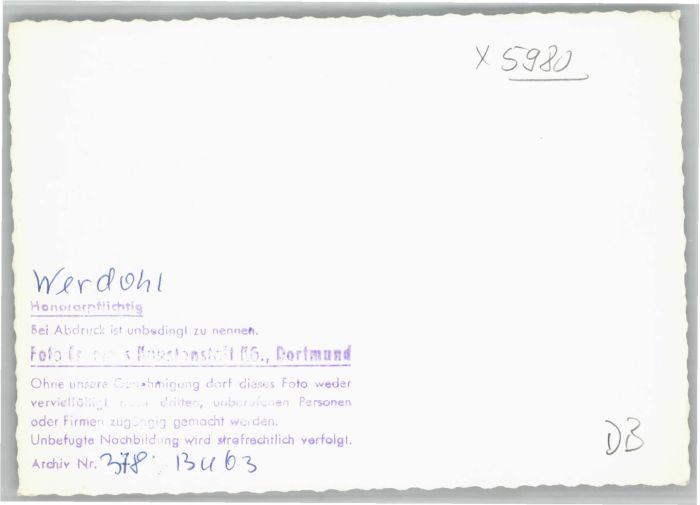 x 5980
Werdohl
Honorarpflichtig
Bei Abdruck ist unbedingt zu nennen.
Foto Kunstanstalt KG., Dortmund
Ohne unsere Genehmigung darf dieses Foto weder
vervielfältigt noch dritten, unberufenen Personen
oder Firmen zugängig gemacht werden.
Unbefugte Nachbildung wird strafrechtlich verfolgt.
Archiv Nr. 378
DB